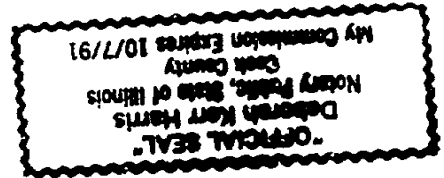 "OFFICIAL SEAL"
Deborah Kerr Harris
Notary Public, State of Illinois
Cook County
My Commission Expires 10/7/91